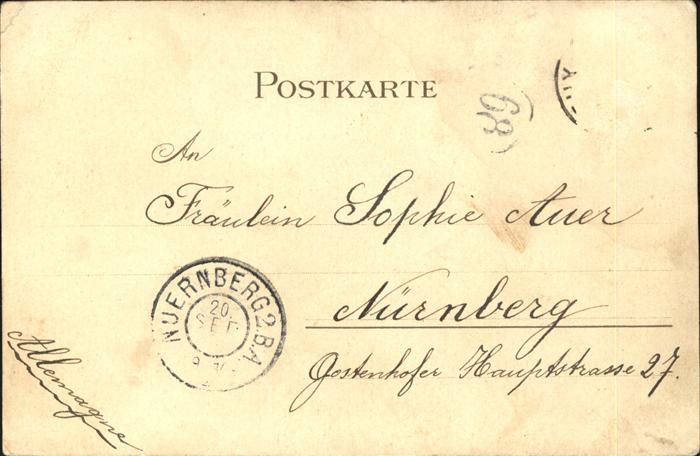 POSTKARTE
68
An
Fräulein Sophie Auer
Nürnberg
Gostenhofer Hauptstrasse 27.
NUERNBERG 2 B.A.
20.
SEP
Allemagne